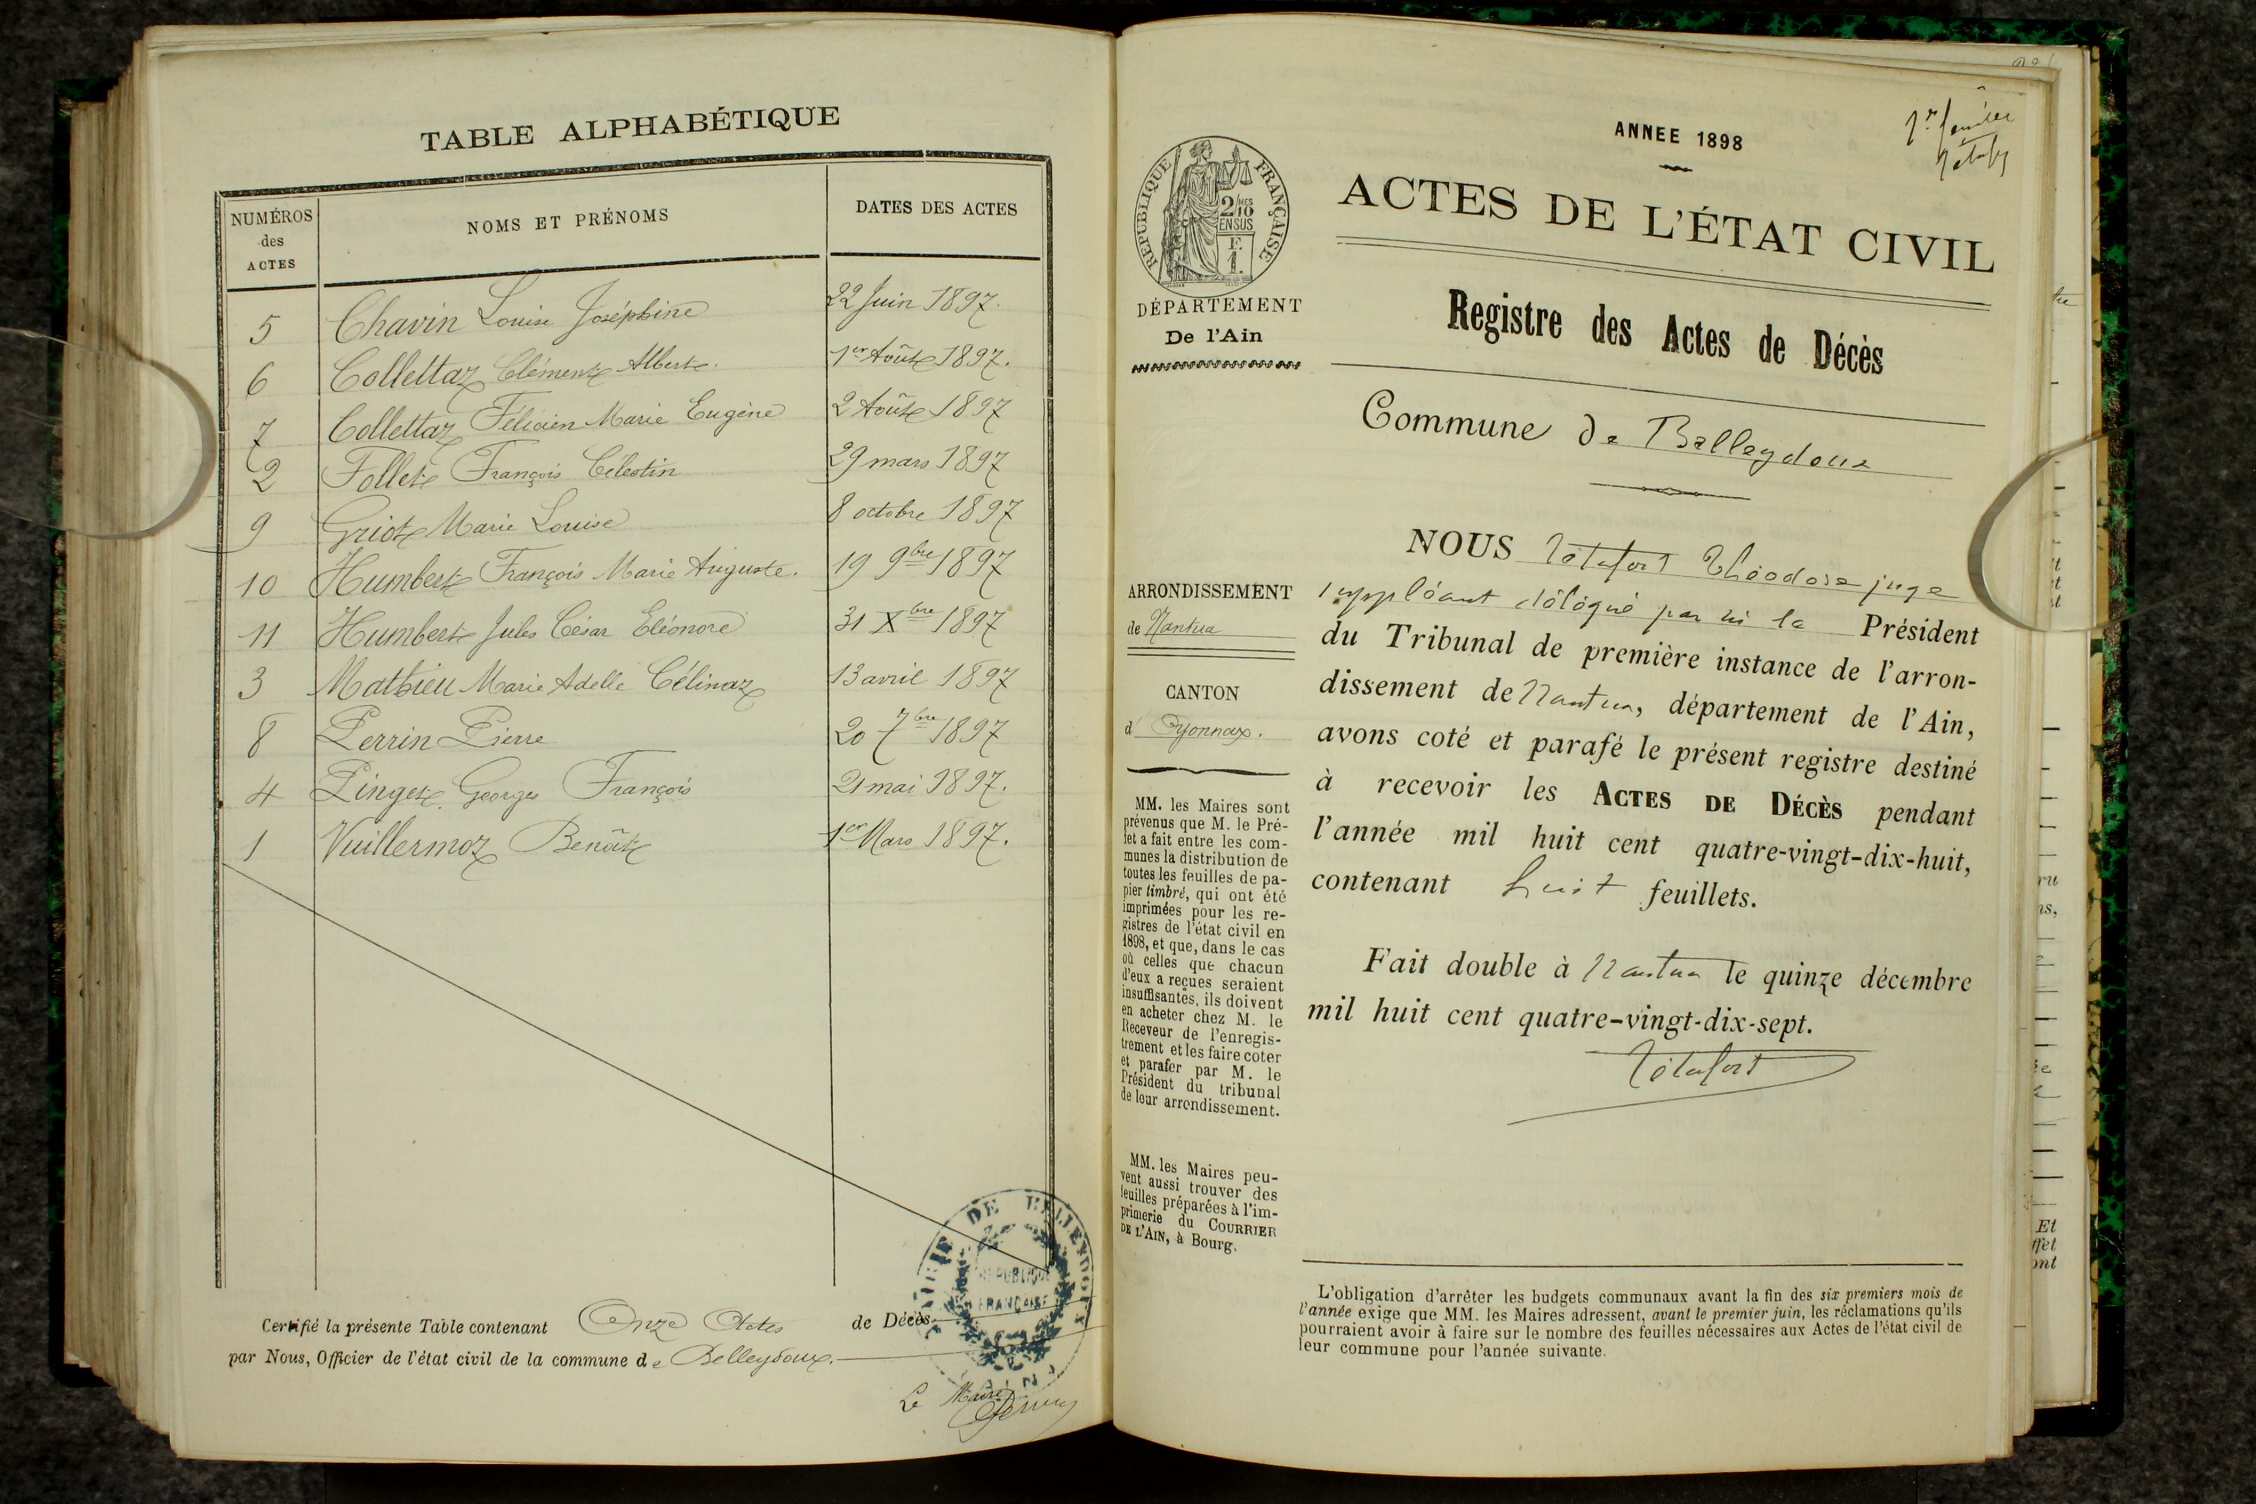 TABLE ALPHABÉTIQUE
NUMÉROS des ACTES
NOMS ET PRÉNOMS
DATES DES ACTES
5 Chavin Louise Joséphine 22 Juin 1897.
6 Collettaz Clément Albert. 1er Août 1897.
7 Collettaz Félicien Marie Eugène 2 Août 1897
2 Follet François Célestin 29 mars 1897
9 Griot Marie Louise 8 octobre 1897
10 Humbert François Marie Auguste. 19 9bre 1897
11 Humbert Jules César Eléonore 31 Xbre 1897
3 Mathieu Marie Adelle Célinaz 13 avril 1897
8 Perrin Pierre 20 7bre 1897
4 Pinget Georges François 21 mai 1897.
1 Vuillermoz Benoît 1er Mars 1897.
Certifié la présente Table contenant Onze Actes de Décès
par Nous, Officier de l'état civil de la commune de Belleydoux.
MAIRIE DE BELLEYDOUX
RÉPUBLIQUE
FRANÇAISE
Le Maire
ANNEE 1898
1er feuillet
ACTES DE L'ÉTAT CIVIL
RÉPUBLIQUE FRANÇAISE
2/10MES
EN SUS
F.
1.
DÉPARTEMENT
De l'Ain
Registre des Actes de Décès
Commune de Belleydoux
ARRONDISSEMENT
de Nantua
CANTON
d'Oyonnax.
MM. les Maires sont
prévenus que M. le Pré-
fet a fait entre les com-
munes la distribution de
toutes les feuilles de pa-
pier timbré, qui ont été
imprimées pour les re-
gistres de l'état civil en
1898, et que, dans le cas
où celles que chacun
d'eux a reçues seraient
insuffisantes, ils doivent
en acheter chez M. le
Receveur de l'enregis-
trement et les faire coter
et parafer par M. le
Président du tribunal
de leur arrondissement.
MM. les Maires peu-
vent aussi trouver des
feuilles préparées à l'im-
primerie du COURRIER
DE L'AIN, à Bourg.
NOUS Tétafort Théodore juge
suppléant délégué par le Président
du Tribunal de première instance de l'arron-
dissement de Nantua, département de l'Ain,
avons coté et parafé le présent registre destiné
à recevoir les ACTES DE DÉCÈS pendant
l'année mil huit cent quatre-vingt-dix-huit,
contenant huit feuillets.
Fait double à Nantua le quinze décembre
mil huit cent quatre-vingt-dix-sept.
Tétafort
L'obligation d'arrêter les budgets communaux avant la fin des six premiers mois de
l'année exige que MM. les Maires adressent, avant le premier juin, les réclamations qu'ils
pourraient avoir à faire sur le nombre des feuilles nécessaires aux Actes de l'état civil de
leur commune pour l'année suivante.